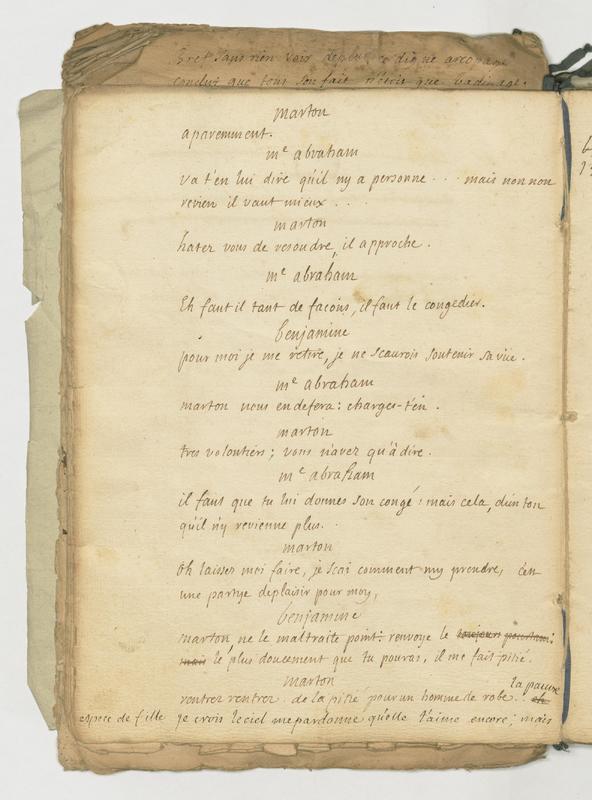 Bref sans rien voir de plus ce digne areopage
conclut que tout son fait n'étoit que badinage.
marton
aparemment.
me abraham
va t'en lui dire qu'il ny a personne . . . mais non non
revien il vaut mieux . . .
marton
hatez vous de resoudre, il approche.
me abraham
Eh faut il tant de facons, il faut le congedier.
benjamine
pour moi je me retire, je ne scaurois soutenir sa vüe.
me abraham
marton nous en defera: charges-t'en.
marton
tres volontiers; vous n'avez qu'à dire.
me abraham
il faut que tu lui donnes son congé: mais cela, d'un ton
qu'il n'y revienne plus.
marton
oh laissez moi faire, je scai comment my prendre, c'en
une partye de plaisir pour moy,
benjamine
marton ne le maltraite point: renvoye le toujours pourtant:
mais le plus doucement que tu pouras, il me fait pitié.
marton
la pauvre
rentrez rentrez. de la pitié pour un homme de robe. . eh
espece de fille je crois le ciel me pardonne qu'elle l'aime encore; mais